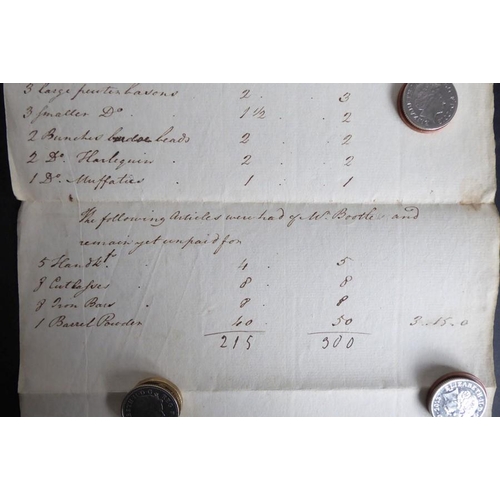 3 large pewter basons 2 . . 3
3 smaller Do . 1 1/2 . . 2
2 Bunches beads 2 . 2
2 Do. Harlequin . 2 . 2
1 Do. Muffaties . 1 . 1
The following Articles were had of Mr. Bootle and
remain yet unpaid for
5 Handkfs . 4 . 5
8 Cutlasses . 8 . 8
8 Iron Bars . 8 . 8
1 Barrel Powder 40 . 50 3..15..0
215 300